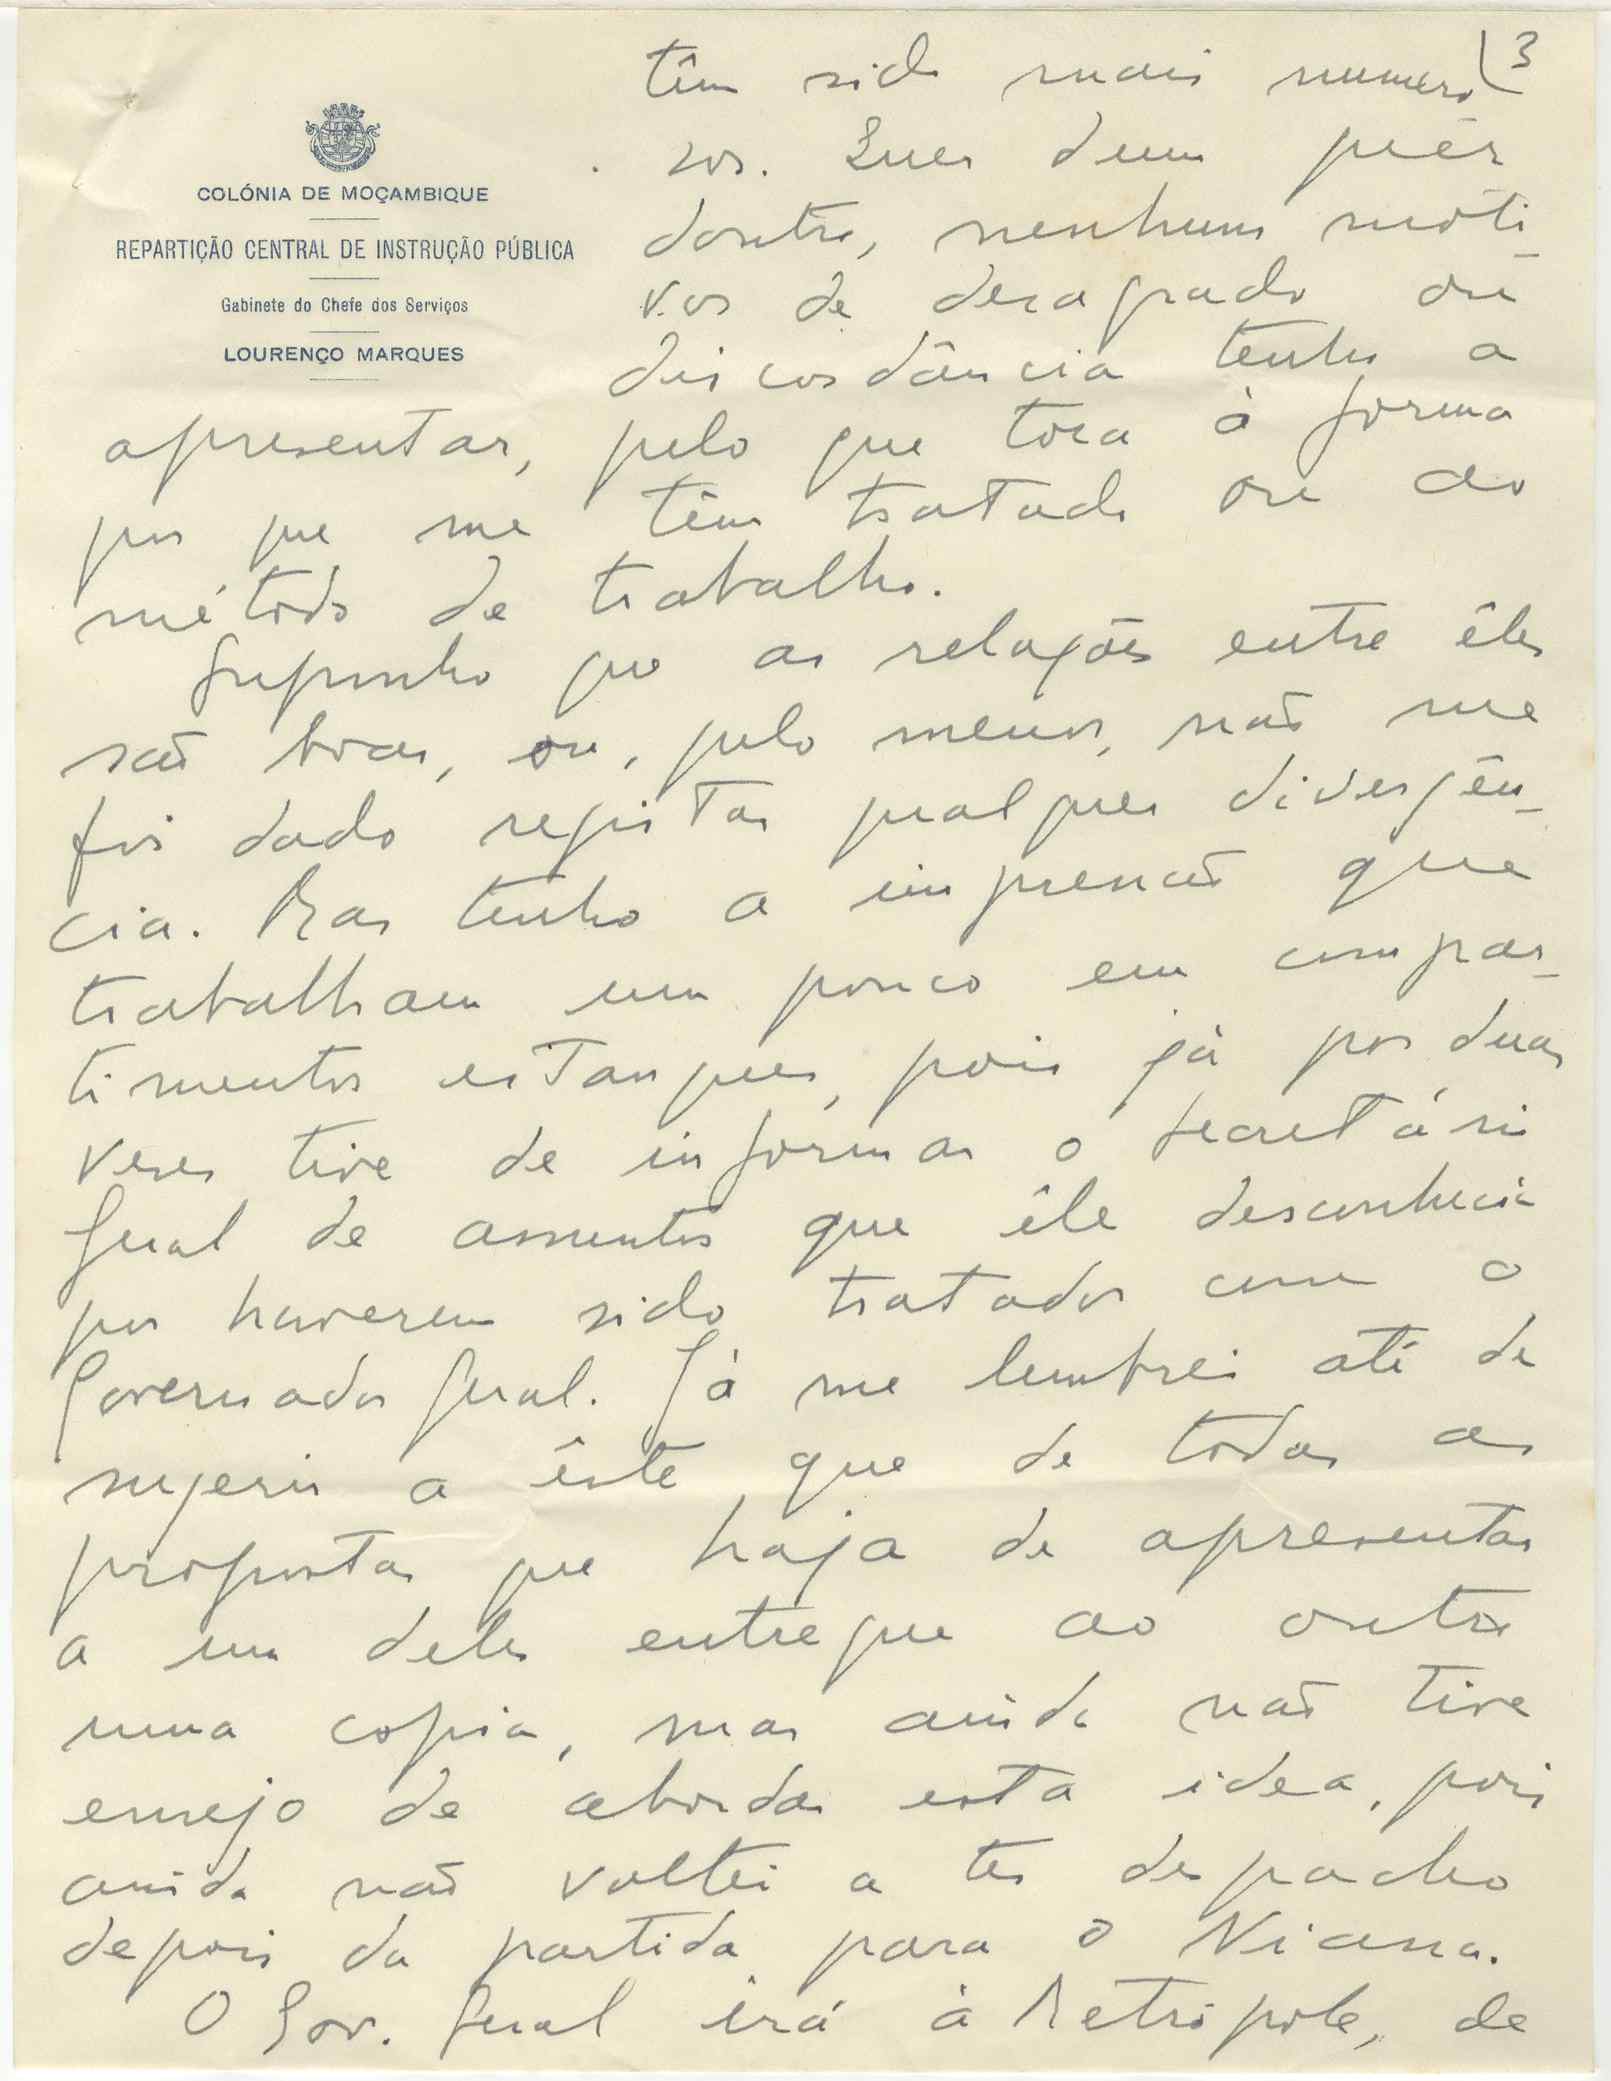 3
COLÓNIA DE MOÇAMBIQUE
REPARTIÇÃO CENTRAL DE INSTRUÇÃO PÚBLICA
Gabinete do Chefe dos Serviços
LOURENÇO MARQUES
têm sido mais numero
sos. Quer dum quer
doutro, nenhuns moti-
vos de desagrado ou
discordância tenho a
apresentar, pelo que toca à forma
por que me têm tratado ou ao
método de trabalho.
Suponho que as relações entre êles
são boas, ou, pelo menos, não me
foi dado registar qualquer divergên-
cia. Mas tenho a impressão que
trabalham um pouco em compar-
timentos estanques, pois já por duas
vezes tive de informar o Secretário
Geral de assuntos que êle desconhecia
por haverem sido tratados com o
Governador Geral. Já me lembrei até de
sugerir a êste que de todas as
propostas que haja de apresentar
a um deles entregue ao outro
uma copia, mas ainda não tive
ensejo de abordar esta idea, pois
ainda não voltei a ter despacho
depois da partida para o Niassa.
O Gov. Geral irá à Metrópole, de